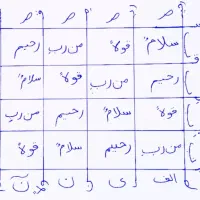 ص ص ص ص
سلامٌ قولاً من رب رحيم
رحيم من رب قولاً سلامٌ
قولاً سلامٌ رحيم من رب
من رب رحيم سلامٌ قولاً
الف ى ن